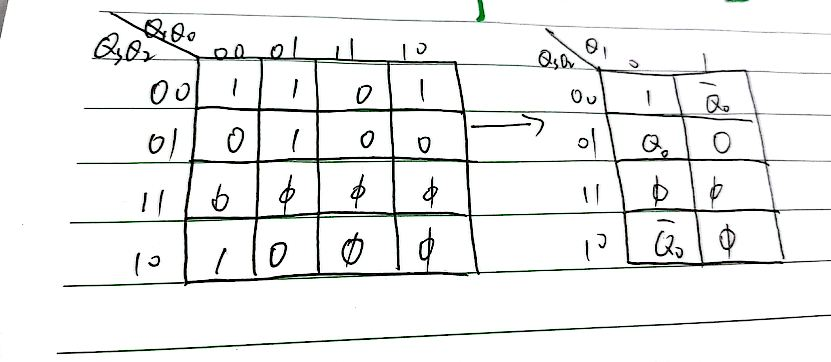 Q₁Q₀
Q₃Q₂ 00 01 11 10
00 1 1 0 1
01 0 1 0 0
11 ϕ ϕ ϕ ϕ
10 1 0 ϕ ϕ
→
Q₁
Q₃Q₂ 0 1
00 1 Q̅₀
01 Q₀ 0
11 ϕ ϕ
10 Q̅₀ ϕ